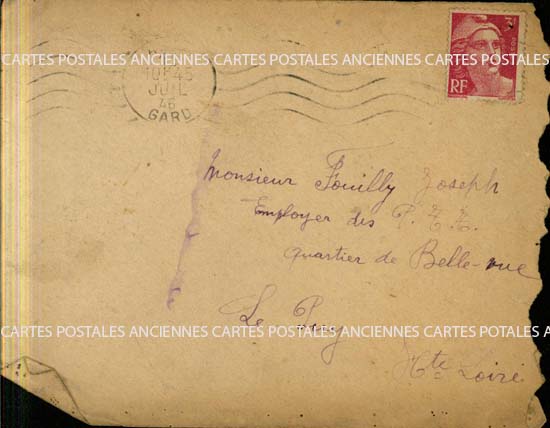 CARTES POSTALES ANCIENNES CARTES POSTALES ANCIENNES CARTES POSTALES
10H45
JUIL
46
GARD
3F
RF
Monsieur Fouilly Joseph
Employer des P.T.T.
quartier de Belle-vue
Le Puy
Hte Loire
CARTES POSTALES ANCIENNES CARTES POSTALES ANCIENNES CARTES POSTALES